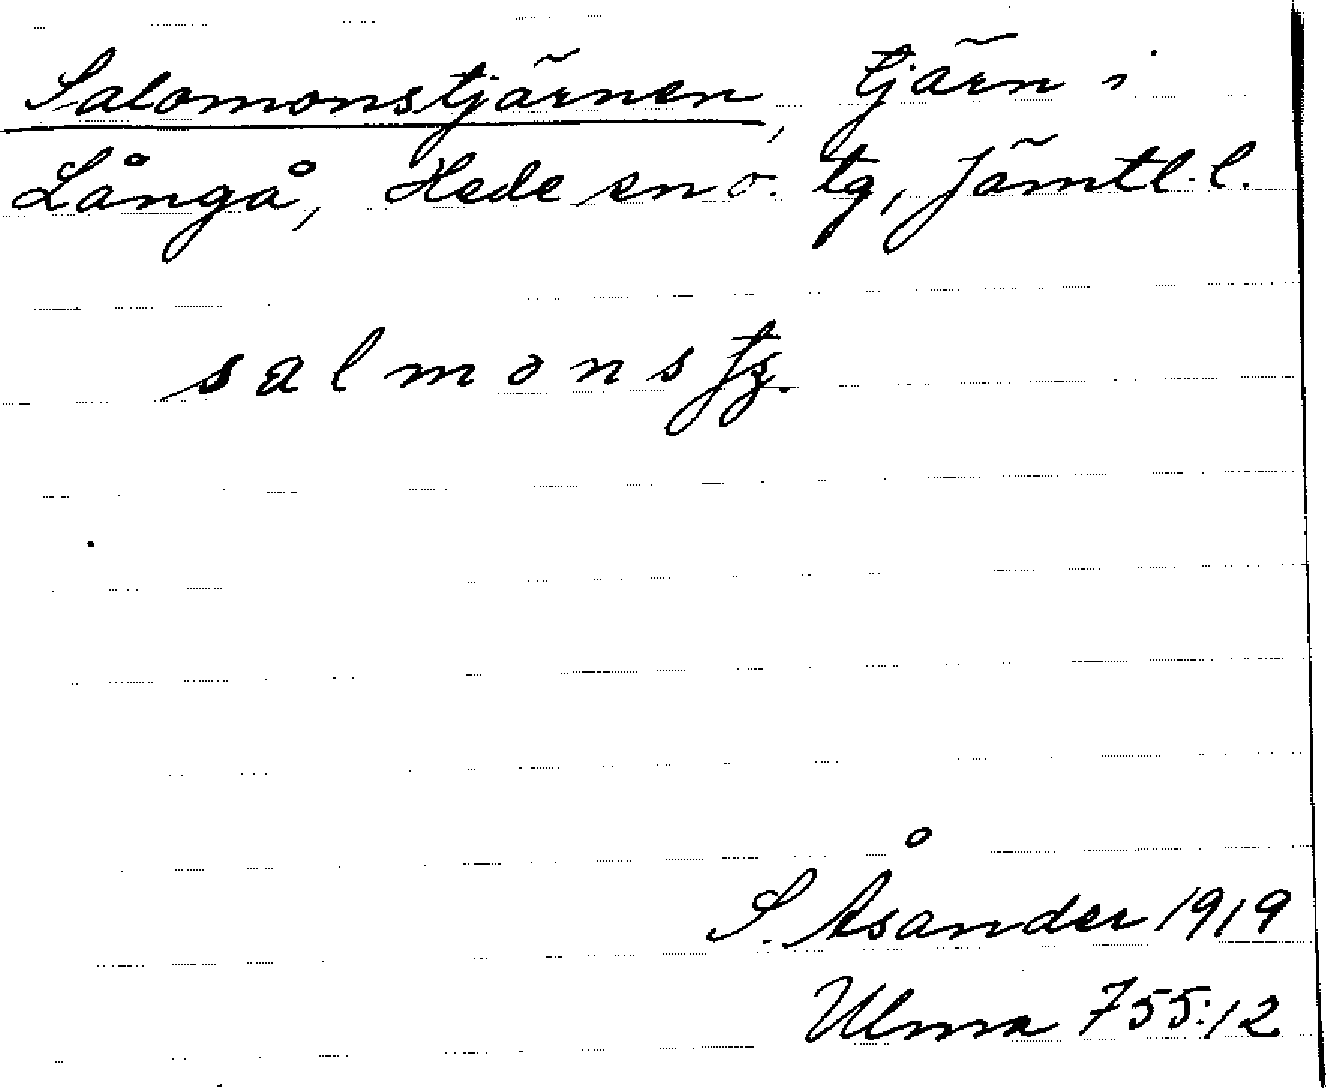 Salomonstjärnen, tjärn i
Långå, Hede sn o. tg, Jämtl. l.
salmons
S. Åsander 1919
Ulma 755:12